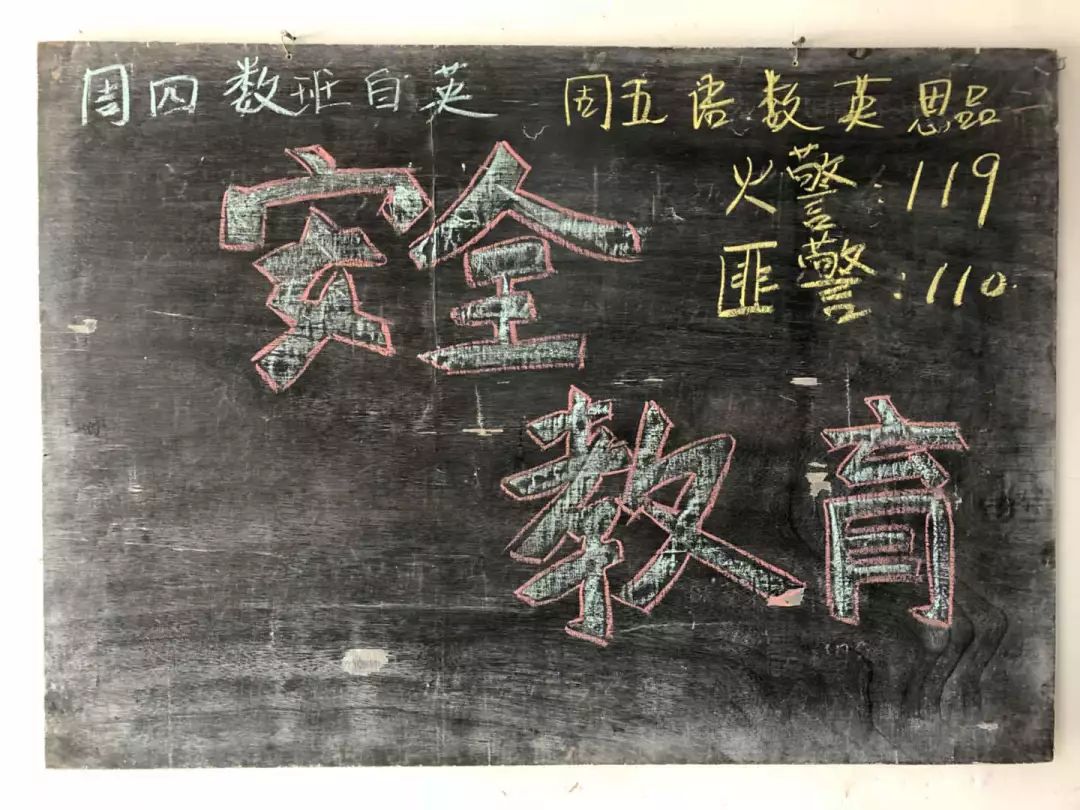 周四数班自英
周五语数英思品
火警:119
匪警:110
安全
教育